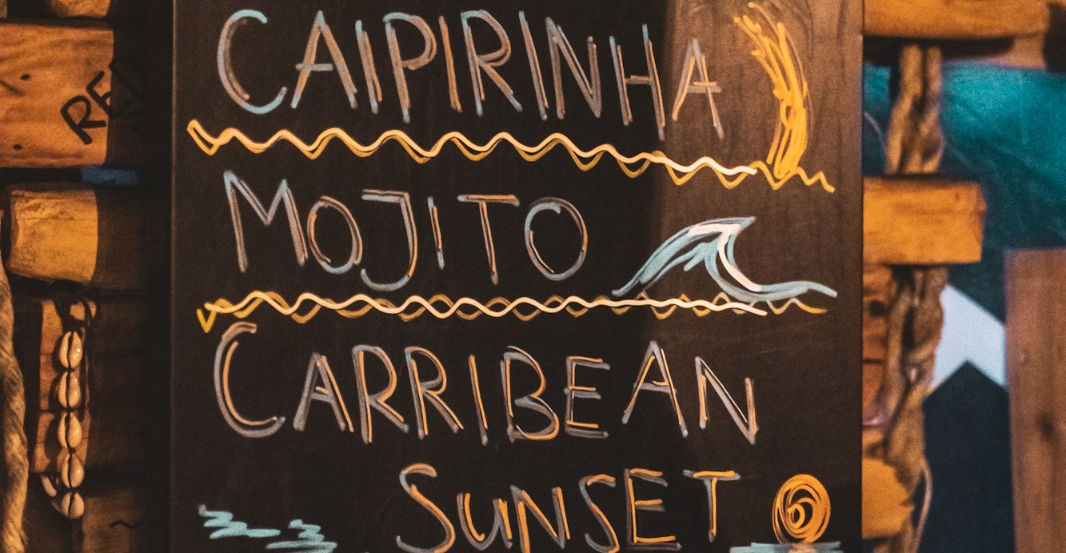 CAIPIRINHA
MOJITO
CARRIBEAN
SUNSET
RED